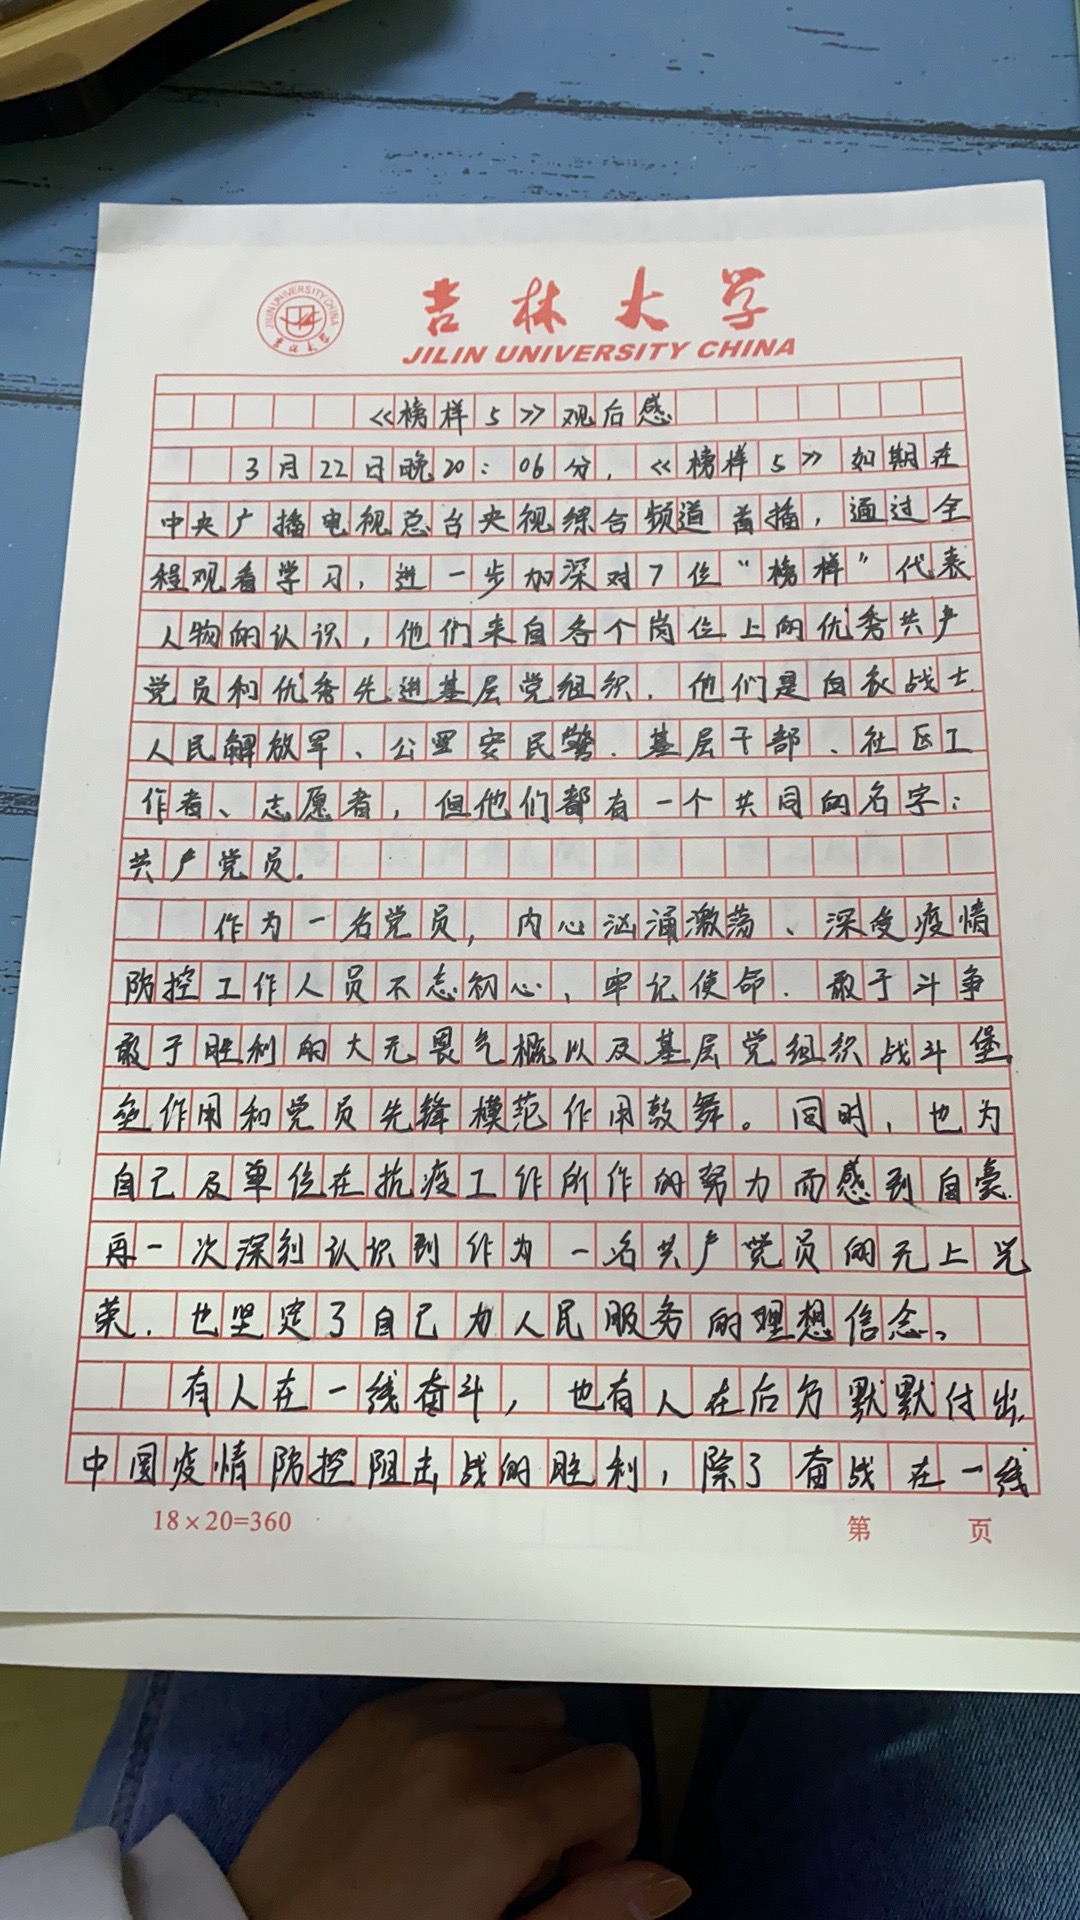 JILIN UNIVERSITY CHINA
吉林大学
吉林大学
JILIN UNIVERSITY CHINA
《榜样5》观后感
3月22日晚20:06分,《榜样5》如期在
中央广播电视总台央视综合频道首播,通过全
程观看学习,进一步加深对7位“榜样”代表
人物的认识,他们来自各个岗位上的优秀共产
党员和优秀先进基层党组织.他们是白衣战士
人民解放军、公安民警.基层干部、社区工
作者、志愿者,但他们都有一个共同的名字:
共产党员.
作为一名党员,内心汹涌激荡、深受疫情
防控工作人员不忘初心、牢记使命.敢于斗争
敢于胜利的大无畏气概以及基层党组织战斗堡
垒作用和党员先锋模范作用鼓舞。同时,也为
自己及单位在抗疫工作所作的努力而感到自豪.
再一次深刻认识到作为一名共产党员的无上光
荣.也坚定了自己为人民服务的理想信念。
有人在一线奋斗,也有人在后方默默付出,
中国疫情防控阻击战的胜利,除了奋战在一线
18×20=360
第 页